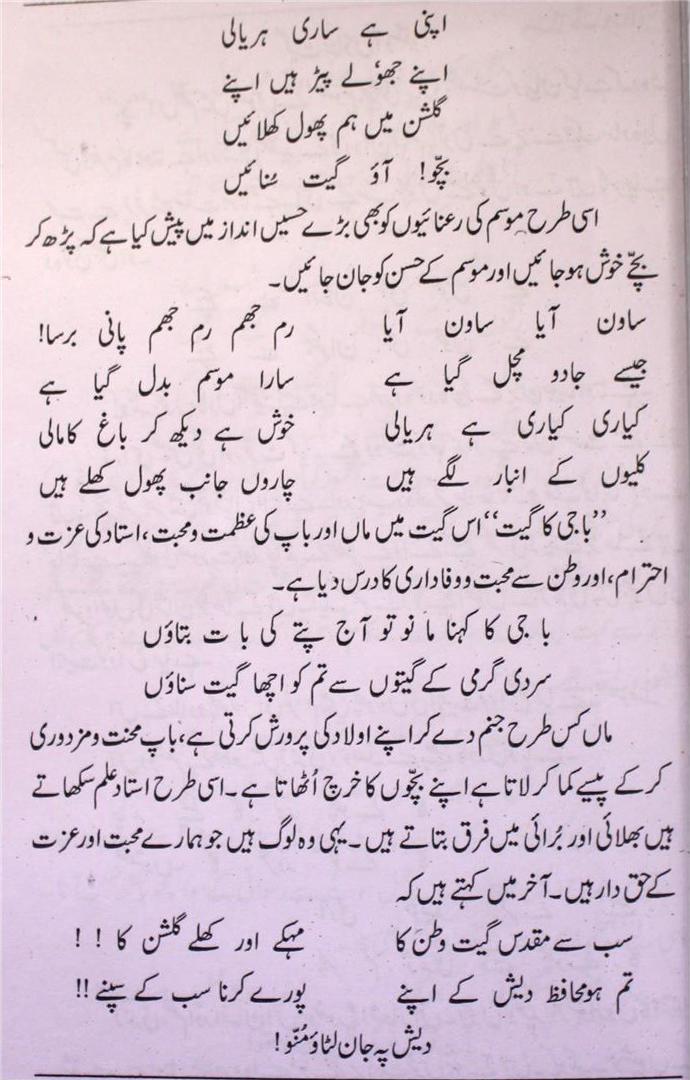 اپنی ہے ساری ہریالی
اپنے جھوٗلے پیڑ ہیں اپنے
گلشن میں ہم پھول کھلائیں
بچّو! آؤ گیت سُنائیں
اسی طرح موسم کی رعنائیوں کو بھی بڑے حسیں انداز میں پیش کیا ہے کہ پڑھ کر
بچّے خوش ہو جائیں اور موسم کے حسن کو جان جائیں۔
ساون آیا ساون آیا رم جھم رم جھم پانی برسا!
جیسے جادو مچل گیا ہے سارا موسم بدل گیا ہے
کیاری کیاری ہے ہریالی خوش ہے دیکھ کر باغ کا مالی
کلیوں کے انبار لگے ہیں چاروں جانب پھول کھلے ہیں
’’باجی کا گیت‘‘ اس گیت میں ماں اور باپ کی عظمت و محبت، استاد کی عزت و
احترام، اور وطن سے محبت و وفاداری کا درس دیا ہے۔
باجی کا کہنا مانو تو آج پتے کی بات بتاؤں
سردی گرمی کے گیتوں سے تم کو اچھا گیت سناؤں
ماں کس طرح جنم دے کر اپنے اولاد کی پرورش کرتی ہے، باپ محنت و مزدوری
کر کے پیسے کما کر لاتا ہے اپنے بچّوں کا خرچ اُٹھاتا ہے۔ اسی طرح استاد علم سکھاتے
ہیں بھلائی اور بُرائی میں فرق بتاتے ہیں۔ یہی وہ لوگ ہیں جو ہمارے محبت اور عزت
کے حق دار ہیں۔ آخر میں کہتے ہیں کہ
سب سے مقدس گیت وطن کا مہکے اور کھلے گلشن کا !!
تم ہو محافظ دیش کے اپنے پورے کرنا سب کے سپنے !!
دیش پہ جان لٹاؤ مُنّو!